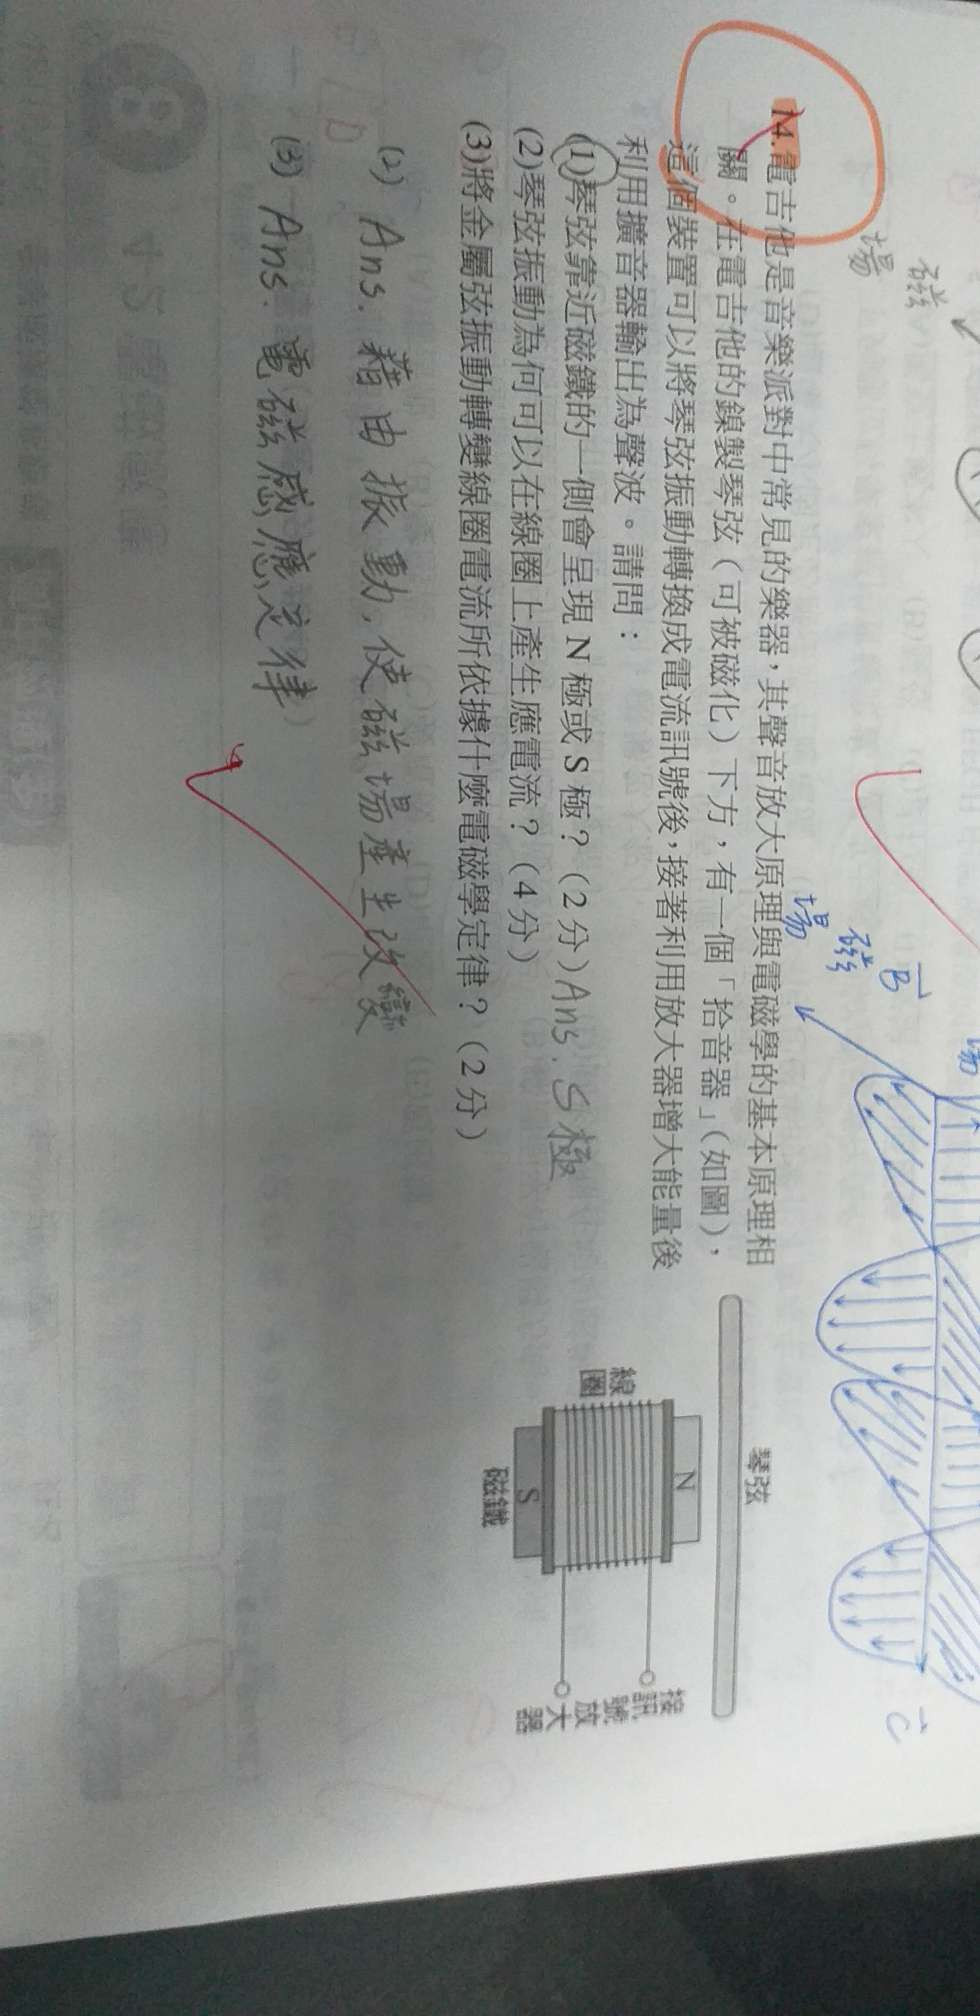 磁
場
B
磁
場
C
14.電吉他是音樂派對中常見的樂器,其聲音放大原理與電磁學的基本原理相
關。在電吉他的鎳製琴弦(可被磁化)下方,有一個「拾音器」(如圖),
這個裝置可以將琴弦振動轉換成電流訊號後,接著利用放大器增大能量後
利用擴音器輸出為聲波。請問:
(1)琴弦靠近磁鐵的一側會呈現 N 極或 S 極?(2 分) Ans. S極
(2)琴弦振動為何可以在線圈上產生應電流?(4 分)
(3)將金屬弦振動轉變線圈電流所依據什麼電磁學定律?(2 分)
琴弦
N
線
圈
S
磁鐵
接訊號放大器
(2) Ans. 藉由振動,使磁場產生改變
(3) Ans. 電磁感應定律